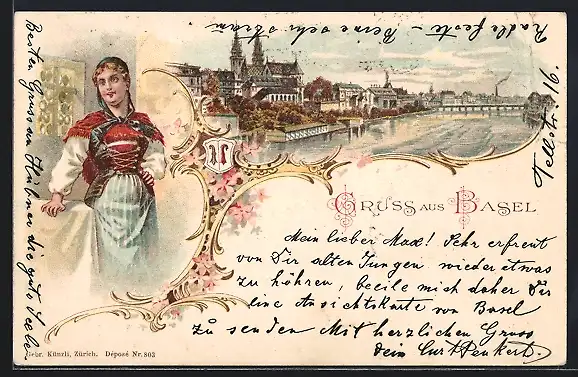 Besten Gruss an Hübner die gute Seele
Tellstr. 16.
GRUSS AUS BASEL
Mein lieber Max! Sehr erfreut
von Dir alten Jungen wieder etwas
zu höhren, beeile mich daher Dir
eine Ansichtskarte von Basel
zu senden Mit herzlichen Gruss
dein Curt Penkert.
Gebr. Künzli, Zürich. Déposé Nr. 803